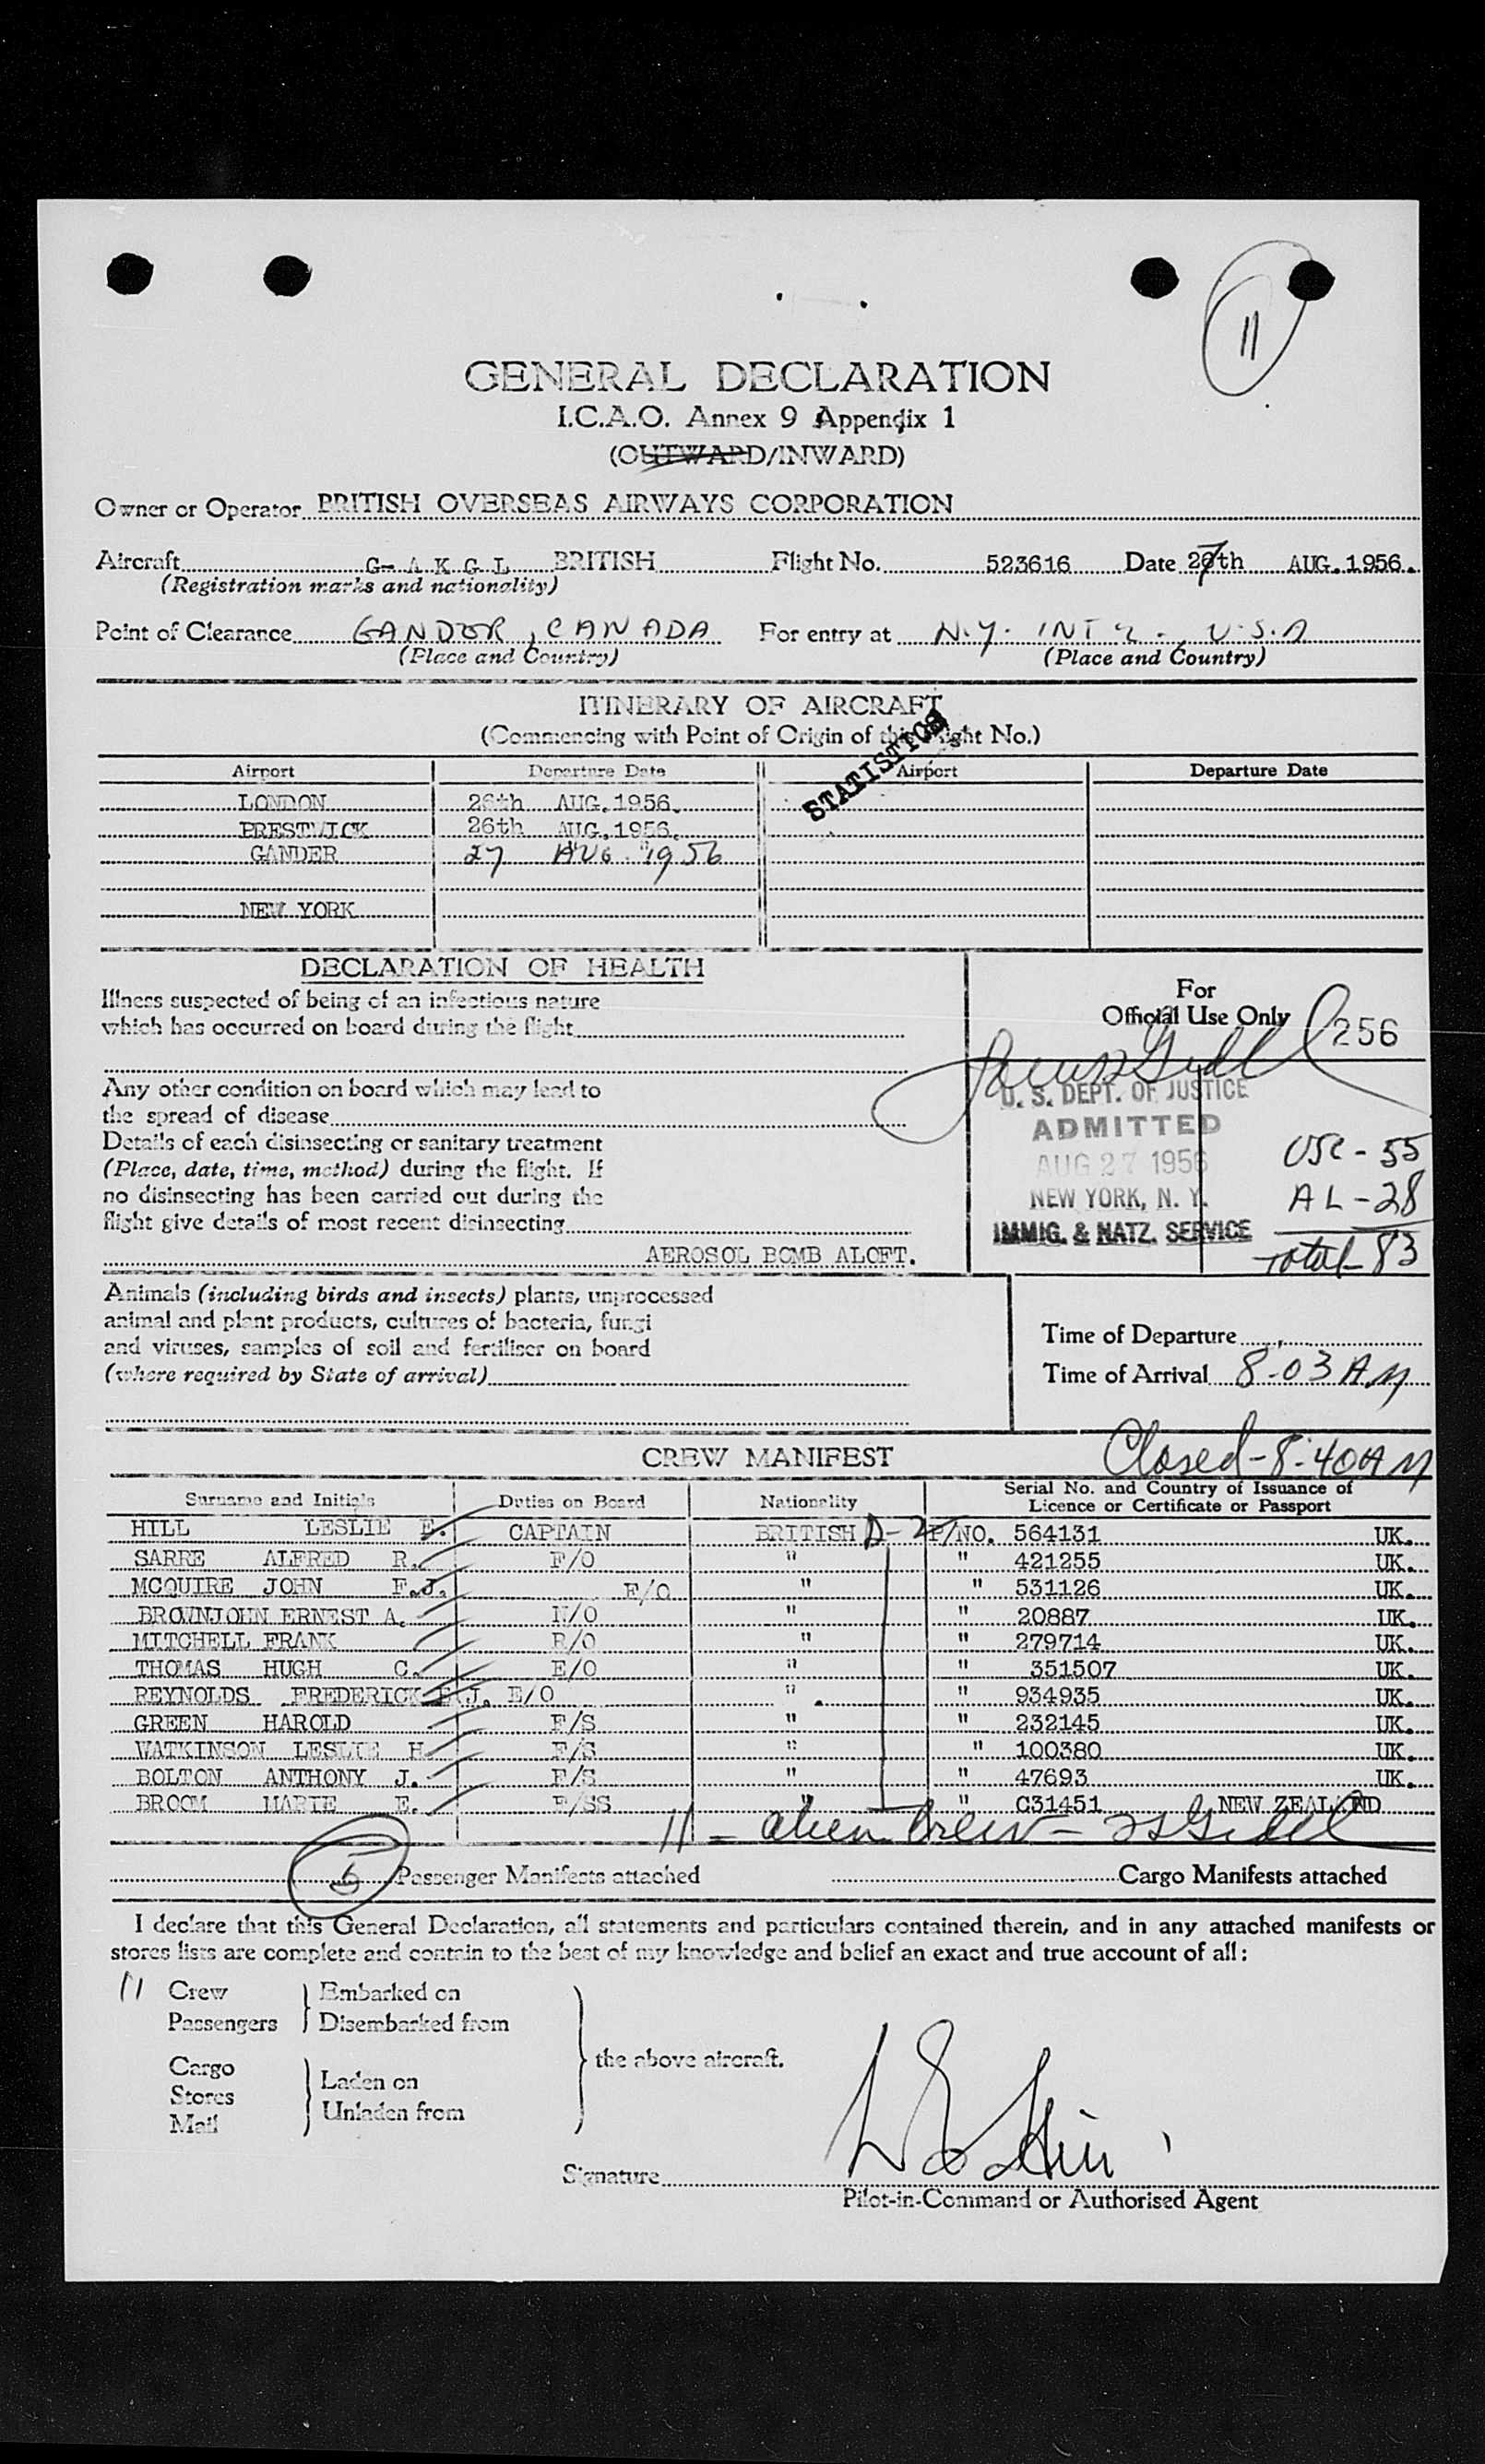 11
GENERAL DECLARATION
I.C.A.O. Annex 9 Appendix 1
(OUTWARD/INWARD)
Owner or Operator BRITISH OVERSEAS AIRWAYS CORPORATION
Aircraft G- A K G L BRITISH Flight No. 523616 Date 27th AUG. 1956.
(Registration marks and nationality)
Point of Clearance GANDER, CANADA For entry at N.Y. INT'L., U.S.A
(Place and Country) (Place and Country)
ITINERARY OF AIRCRAFT
(Commencing with Point of Origin of this Flight No.)
STATISTICS
Airport Departure Date Airport Departure Date
LONDON 26th AUG. 1956.
PRESTWICK 26th AUG. 1956.
GANDER 27 AUG. 1956
NEW YORK
DECLARATION OF HEALTH
Illness suspected of being of an infectious nature
which has occurred on board during the flight
Any other condition on board which may lead to
the spread of disease
Details of each disinsecting or sanitary treatment
(Place, date, time, method) during the flight. If
no disinsecting has been carried out during the
flight give details of most recent disinsecting
AEROSOL BOMB ALOFT.
For
Official Use Only 256
U. S. DEPT. OF JUSTICE
ADMITTED
AUG 27 1956
NEW YORK, N. Y.
IMMIG. & NATZ. SERVICE
USC - 55
AL - 28
Total - 83
Animals (including birds and insects) plants, unprocessed
animal and plant products, cultures of bacteria, fungi
and viruses, samples of soil and fertiliser on board
(where required by State of arrival)
Time of Departure
Time of Arrival 8-03 AM
Closed - 8:40 AM
CREW MANIFEST
Surname and Initials Duties on Board Nationality Serial No. and Country of Issuance of
Licence or Certificate or Passport
HILL LESLIE E. CAPTAIN BRITISH D-2 P/NO. 564131 UK.
SARRE ALFRED R. F/O " " 421255 UK.
MCQUIRE JOHN F.J. F/O " " 531126 UK.
BROWNJOHN ERNEST A. N/O " " 20887 UK.
MITCHELL FRANK R/O " " 279714 UK.
THOMAS HUGH C. E/O " " 351507 UK.
REYNOLDS FREDERICK J. E/O " " 934935 UK.
GREEN HAROLD F/S " " 232145 UK.
WATKINSON LESLIE H F/S " " 100380 UK.
BOLTON ANTHONY J. F/S " " 47693 UK.
BROOM MARIE E. F/SS " " C31451 NEW ZEALAND
11 - alien Crew -
6 Passenger Manifests attached Cargo Manifests attached
I declare that this General Declaration, all statements and particulars contained therein, and in any attached manifests or
stores lists are complete and contain to the best of my knowledge and belief an exact and true account of all:
11 Crew Embarked on
Passengers Disembarked from
the above aircraft.
Cargo
Stores
Mail
Laden on
Unladen from
Signature L E Hill
Pilot-in-Command or Authorised Agent